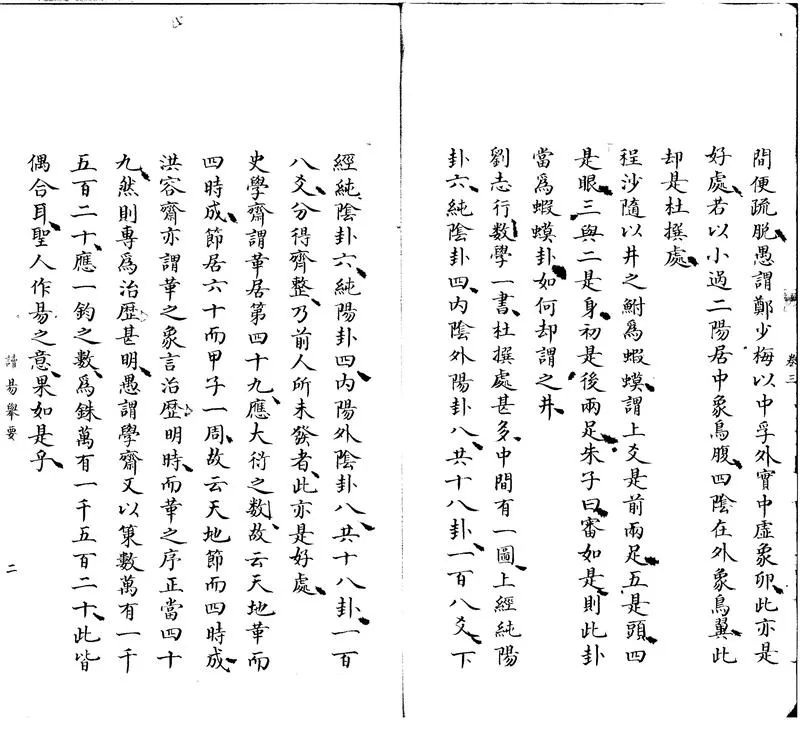 間便疏脱愚謂鄭少梅以中孚外實中虛象卵此亦是
好處若以小過二陽居中象鳥腹四陰在外象鳥翼此
却是杜撰處
程沙隨以井之鮒爲蝦蟆謂上爻是前兩足五是頭四
是眼三與二是身初是後兩足朱子曰審如是則此卦
當爲蝦蟆卦如何却謂之井
劉志行數學一書杜撰處甚多中間有一圖上經純陽
卦六純陰卦四内陰外陽卦八共十八卦一百八爻下
卷三
經純陰卦六純陽卦四内陽外陰卦八共十八卦一百
八爻分得齊整乃前人所未發者此亦是好處
史學齋謂革居第四十九應大衍之數故云天地革而
四時成節居六十而甲子一周故云天地節而四時成
洪容齋亦謂革之象言治歷明時而革之序正當四十
九然則專爲治歷甚明愚謂學齋又以策數萬有一千
五百二十應一鈞之數爲銖萬有一千五百二十此皆
偶合耳聖人作易之意果如是乎
讀易舉要
二